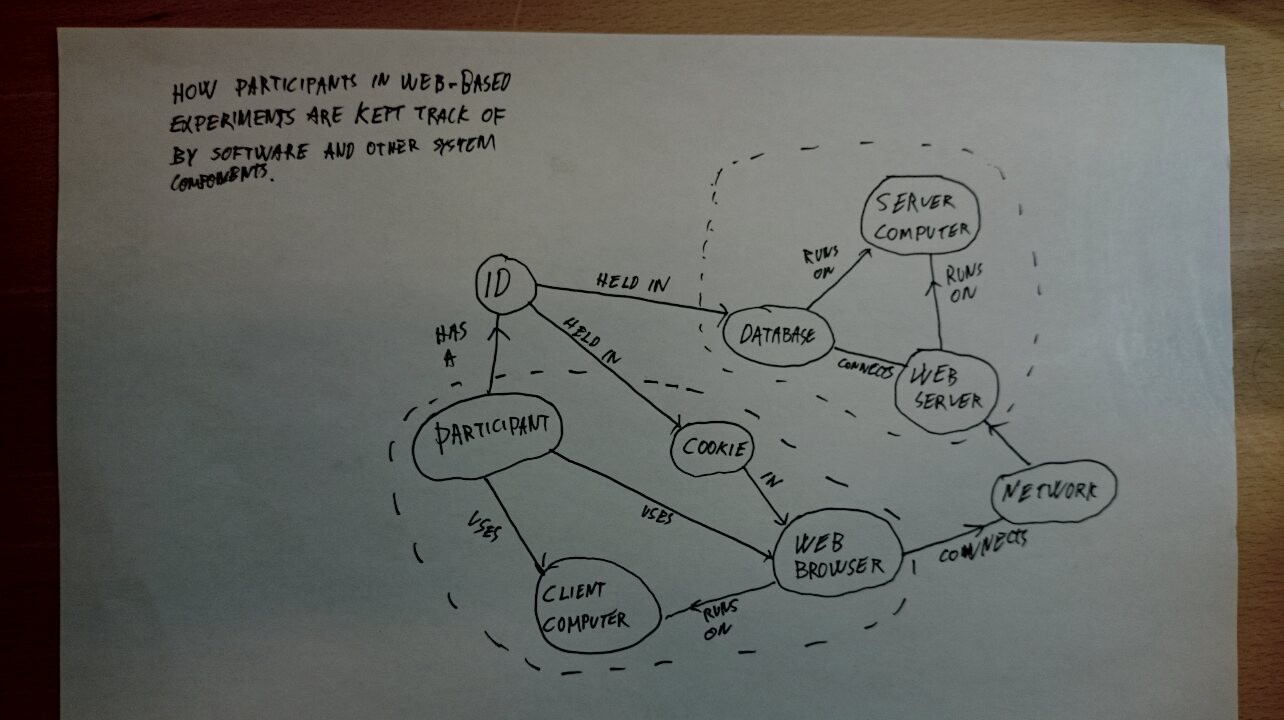 HOW PARTICIPANTS IN WEB-BASED
EXPERIMENTS ARE KEPT TRACK OF
BY SOFTWARE AND OTHER SYSTEM
COMPONENTS.
SERVER
COMPUTER
RUNS
ON
RUNS
ON
ID
HELD IN
HELD IN
DATABASE
CONNECTS
WEB
SERVER
HAS
A
PARTICIPANT
COOKIE
IN
NETWORK
USES
USES
WEB
BROWSER
CONNECTS
CLIENT
COMPUTER
RUNS
ON